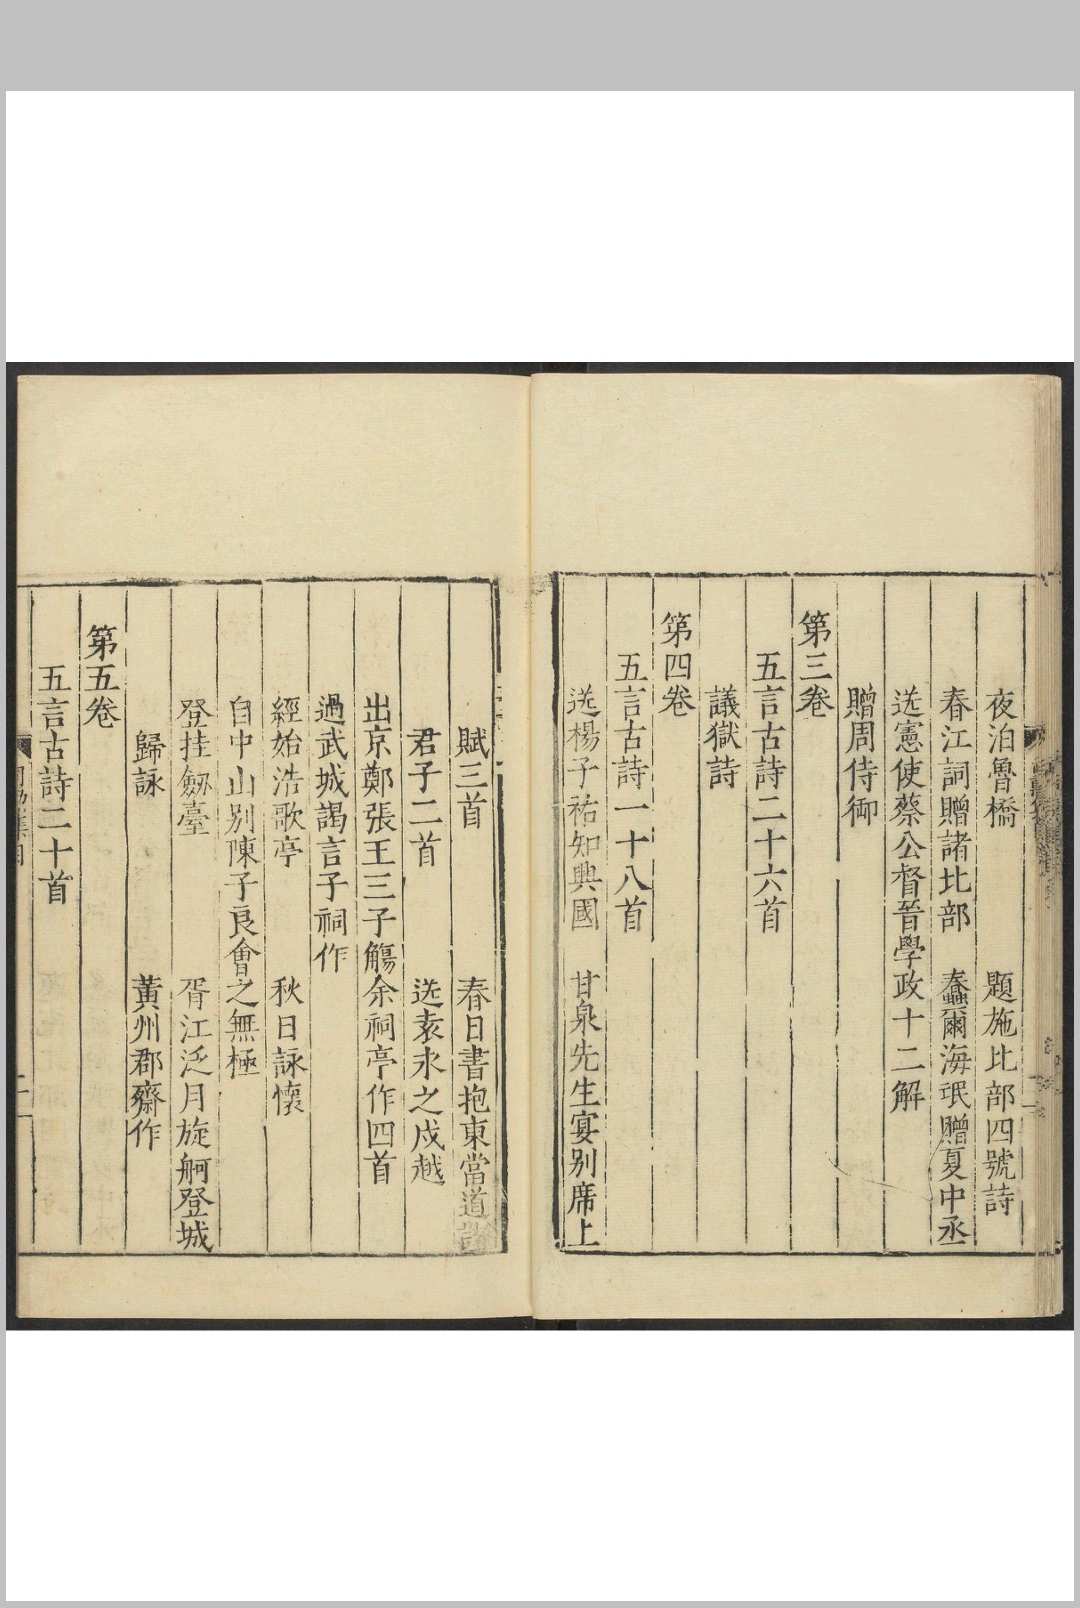 夜泊魯橋 題施比部四號詩
春江詞贈諸比部 蠢爾海氓贈夏中丞
送憲使蔡公督晉學政十二解
贈周侍御
第三卷
五言古詩二十六首
議獄詩
第四卷
五言古詩一十八首
送楊子祐知興國 甘泉先生宴別席上
賦三首 春日書抱東當道諸
君子二首 送袁永之戍越
出京鄭張王三子觴余祠亭作四首
過武城謁言子祠作
經始浩歌亭 秋日詠懷
自中山別陳子良會之無極
登挂劔臺 胥江泛月旋舸登城
歸詠 黃州郡齋作
第五卷
五言古詩二十首